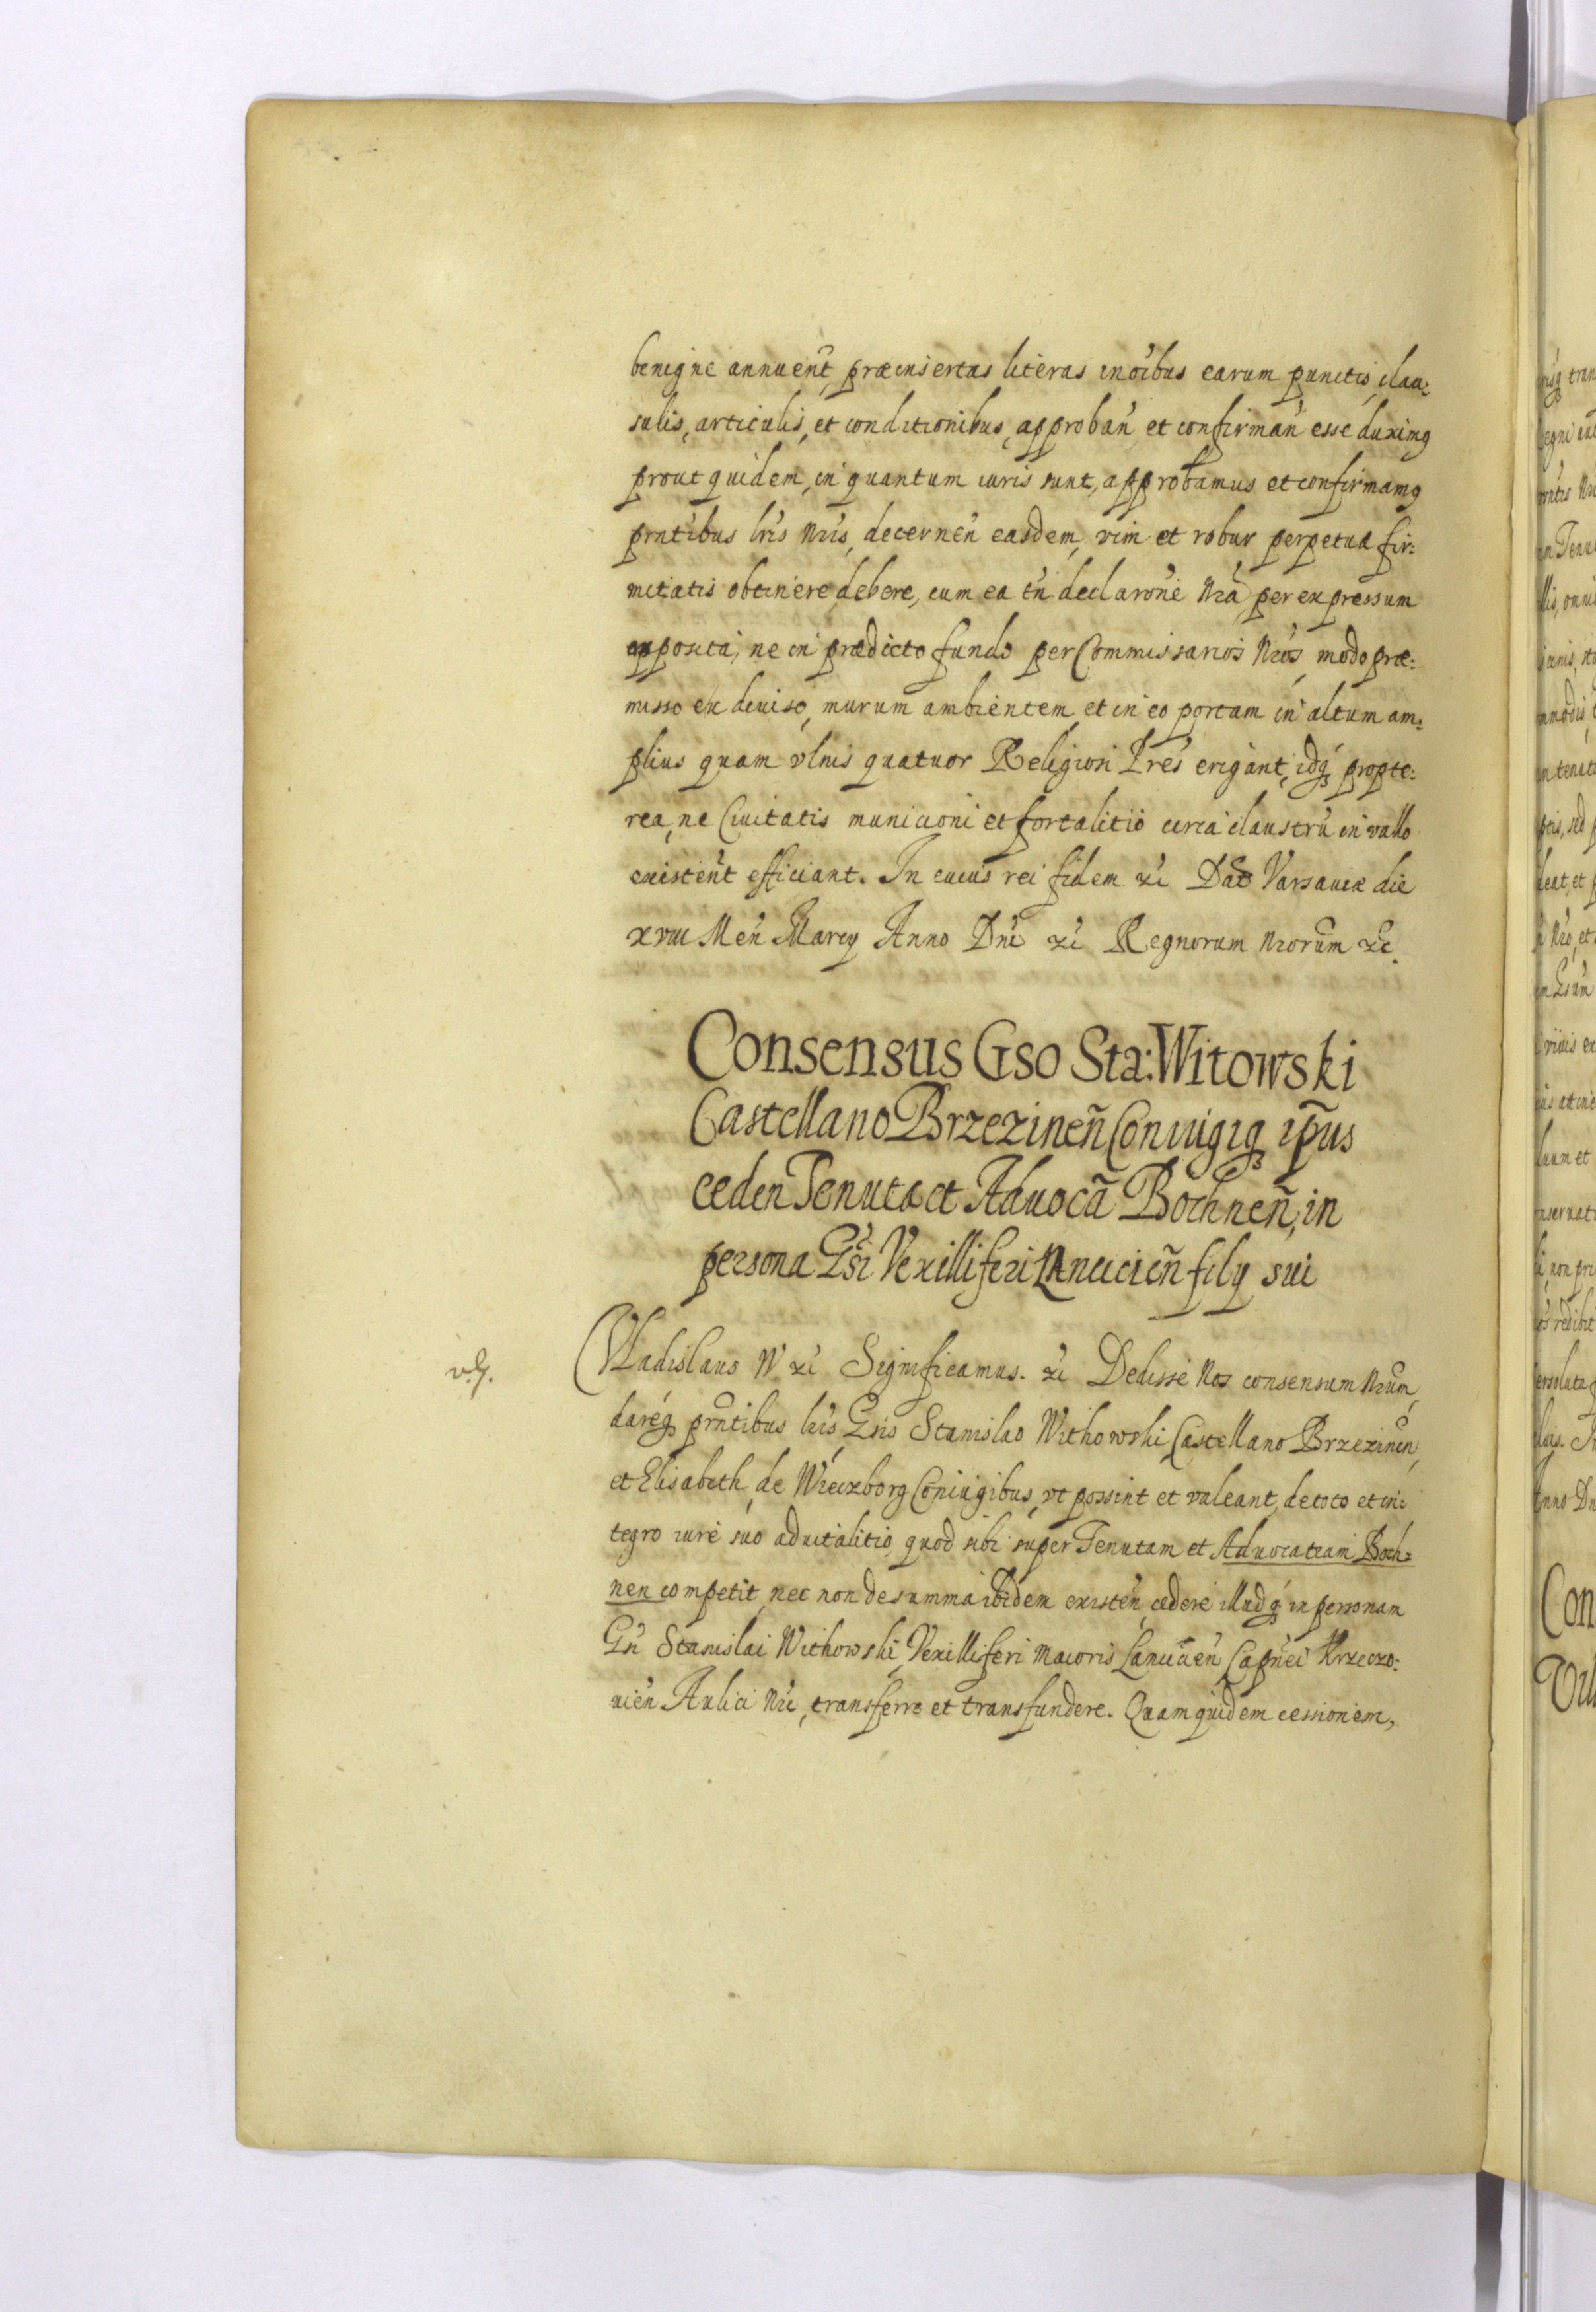 benigne annuen̄t, præinsertas literas in oībus earum punctis, clau:
sulis, articulis, et conditionibus, approban̄ et confirman̄ esse duximꝰ
prout quidem, in quantum iuris sunt, approbamus et confirmamꝰ
prn̄tibus lr̄is Nr̄is, decernen̄ easdem, vim et robur perpetuæ fir:
mitatis obtinere debere, cum ea tn̄ declarōne Nr̄a per expressum
apposita, ne in prædicto fundo per Commissarios Nr̄os, modo præ:
misso ex diuiso, murum ambientem et in eo portam in altum am:
plius quam vlnis quatuor Religiosi Pr̄es erigant, idq́ꝫ propte:
rea, ne Ciuitatis municioni et fortalitio circa claustrū in vallo
existen̄t efficiant. In cuius rei fidem ꝛc Dat̄ Varsauiæ die
xviii Men̄ Marcy Anno Dn̄i ꝛc Regnorum Nrorum̄ ꝛc.
Consensus Gso Sta: Witowski
Castellano Brzezinen̄ Coniugiqꝫ ip̄ius
ceden Tenuta et Aduocā Bochnen̄, in
persona Gsi Vexilliferi Lancicien̄ fily sui
v.g.
Vladislaus IV ꝛc Significamus. ꝛc Dedisse Nos consensum Nrum̄,
daréqꝫ prn̄tibus lr̄is Gsis Stanislao Withowski Castellano Brzezinen̄,
et Elisabeth de Wieczborg Coniugibus, vt possint et valeant, de toto et in:
tegro iure suo aduitalitio, quod sibi super Tenutam et Aduocatiam Boch:
nen competit, nec non de summa ibidem existen̄, cedere illudq́ꝫ in personam
Gsi Stanislai Withowski, Vexilliferi Maioris Lancicien̄ Capn̄ei Krzeczo:
uien̄ Aulici Nr̄i, transferre et transfundere. Quam quidem cessionem,